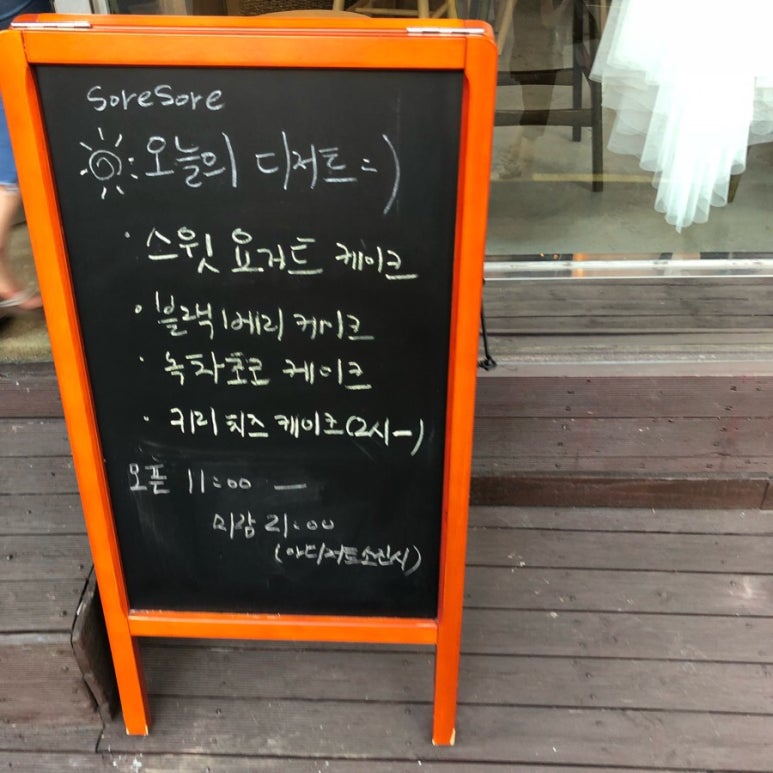 SoreSore
오늘의 디저트=)
· 스윗 요거트 케이크
· 블랙베리 케이크
· 녹차초코 케이크
· 키리치즈 케이크(2시-)
오픈 11:00 —
마감 21:00
디저트소진시)